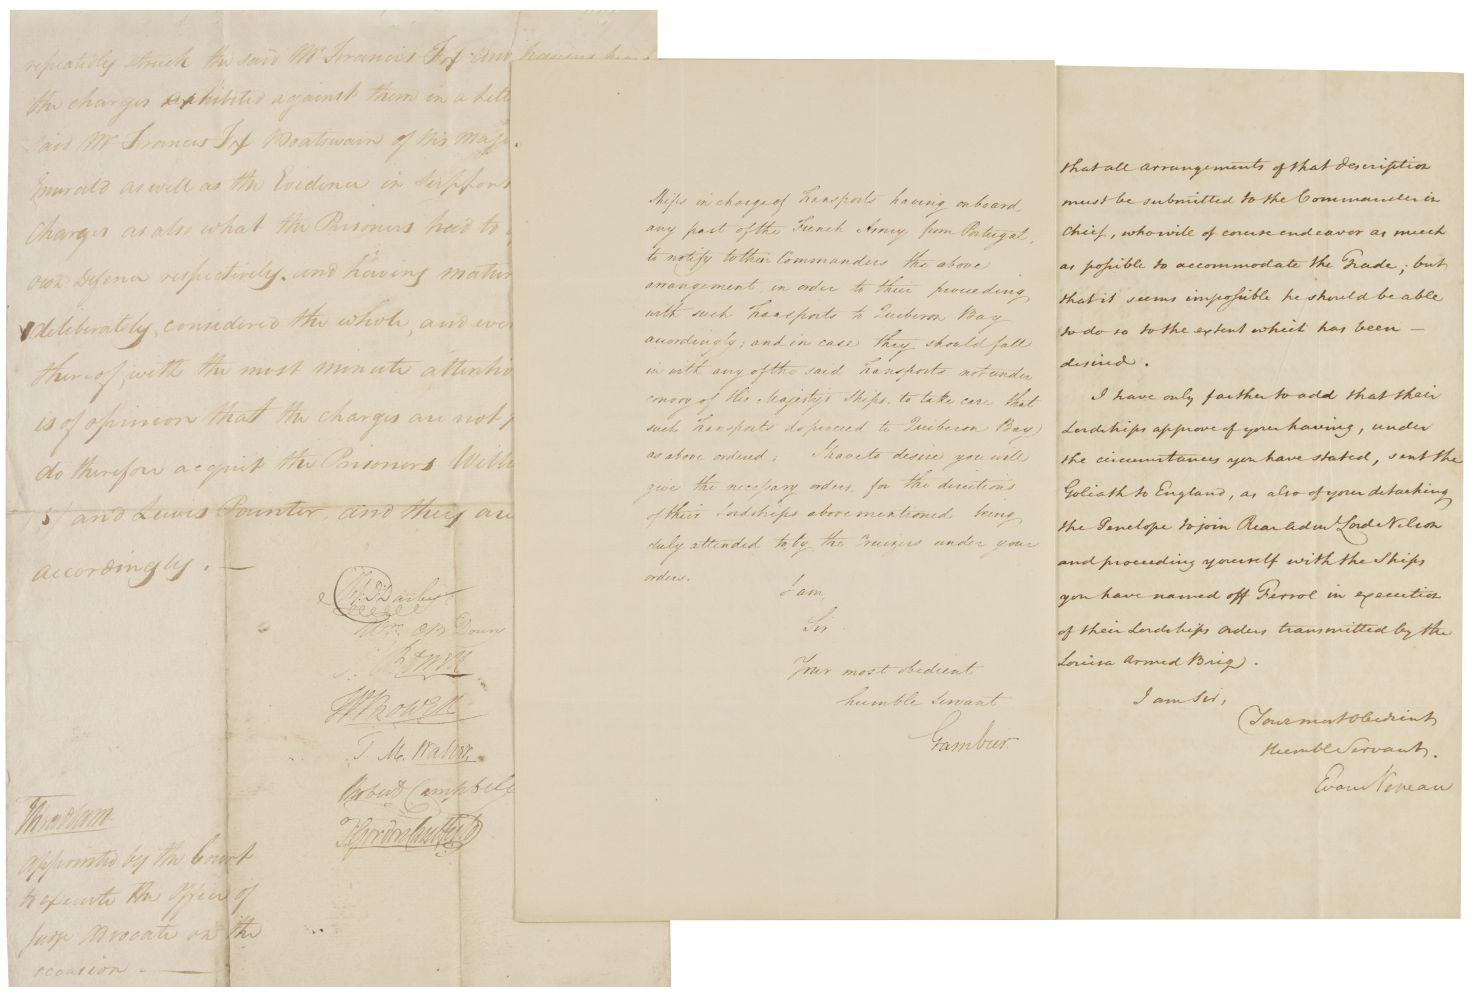 repeatedly struck the said Mr Francis Fox and having heard
the charges exhibited against them in a Lett
said Mr Francis Fox Boatswain of His Maj
Emerald as well as the Evidence in Support
Charges as also what the Prisoners had to
own Defence respectively. and having matur
deliberately, considered the whole, and eve
thereof, with the most minute attentio
is of opinion that the charges are not
do therefore acquit the Prisoners Will
and Lewis Pounter, and they are
accordingly. —
H. D. Darby
T. M. Waller
Robert Campbell
appointed by the Court
to execute the Office of
Judge Advocate on the
occasion. —
Ships in charge of Transports having onboard
any part of the French Army from Portugal,
to notify to their Commanders the above
arrangement, in order to their proceeding
with such Transports to Quiberon Bay
accordingly; and in case they should fall
in with any of the said Transports not under
convoy of His Majesty's Ships, to take care that
such Transports do proceed to Quiberon Bay
as above ordered; I have to desire you will
give the necessary orders, for the directions
of their Lordships abovementioned being
duly attended to by the Cruizers under your
orders.
I am,
Sir
Your most obedient
humble servant
Gambier.
that all arrangements of that description
must be submitted to the Commander in
Chief, who will of course endeavor as much
as possible to accommodate the Trade; but
that it seems impossible he should be able
to do so to the extent which has been —
desired.
I have only farther to add that their
Lordships approve of your having, under
the circumstances you have stated, sent the
Goliath to England, as also of your detaching
the Penelope to join Rear Adml. Lord Nelson
and proceeding yourself with the Ships
you have named off Ferrol in execution
of their Lordships orders transmitted by the
Louisa Armed Brig.
I am Sir,
Your most Obedient
Humble Servant.
Evan Nepean